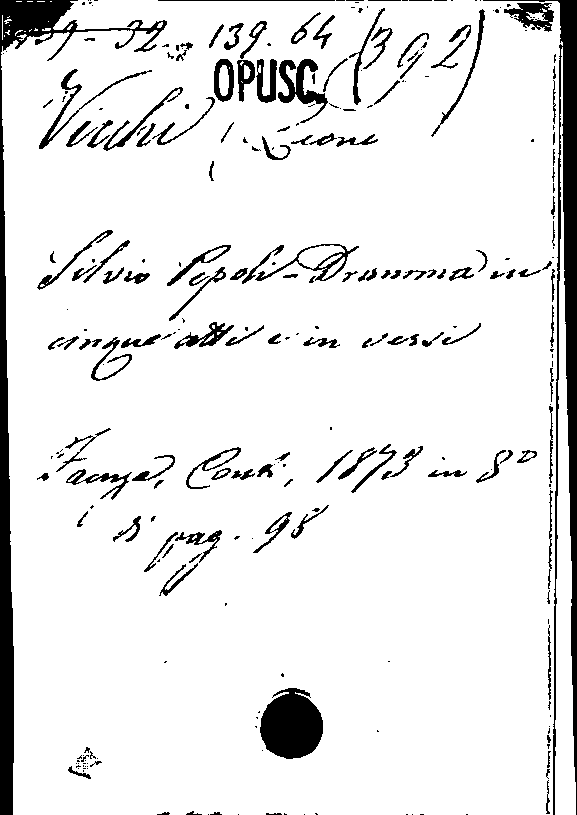 139-32 139.64 (392)
OPUSC.
Vicchi, Leone
Silvio Pepoli - Dramma in
cinque atti e in versi
Faenza, Conti, 1873 in 8°
di pag. 98